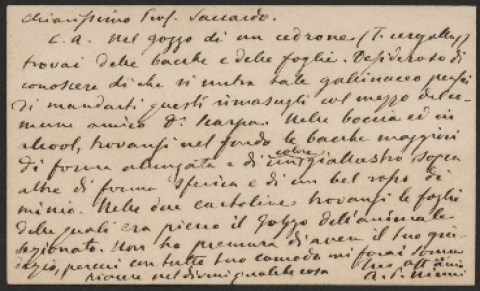 Chiarissimo Prof. Saccardo.
C. A. Nel gozzo di un cedrone (T. urogallus)
trovai delle bacche e delle foglie. Desideroso di
conoscere di che si nutra tale gallinaceo pensai
di mandarti questi rimasugli col mezzo del co-
mune amico Dr. Scarpa. Nella boccia ed in
alcool, trovansi nel fondo le bacche maggiori
di forma allungata e di colore giallastro, sopra
altre di forma sferica e di un bel rosso di
minio. Nelle due cartoline trovansi le foglie
delle quali era pieno il gozzo dell'animale
sezionato. Non ho premura di avere il tuo giu-
dizio, perciò con tutto tuo comodo mi farai sommo
piacere nel dirmi qualche cosa
A. P. Ninni